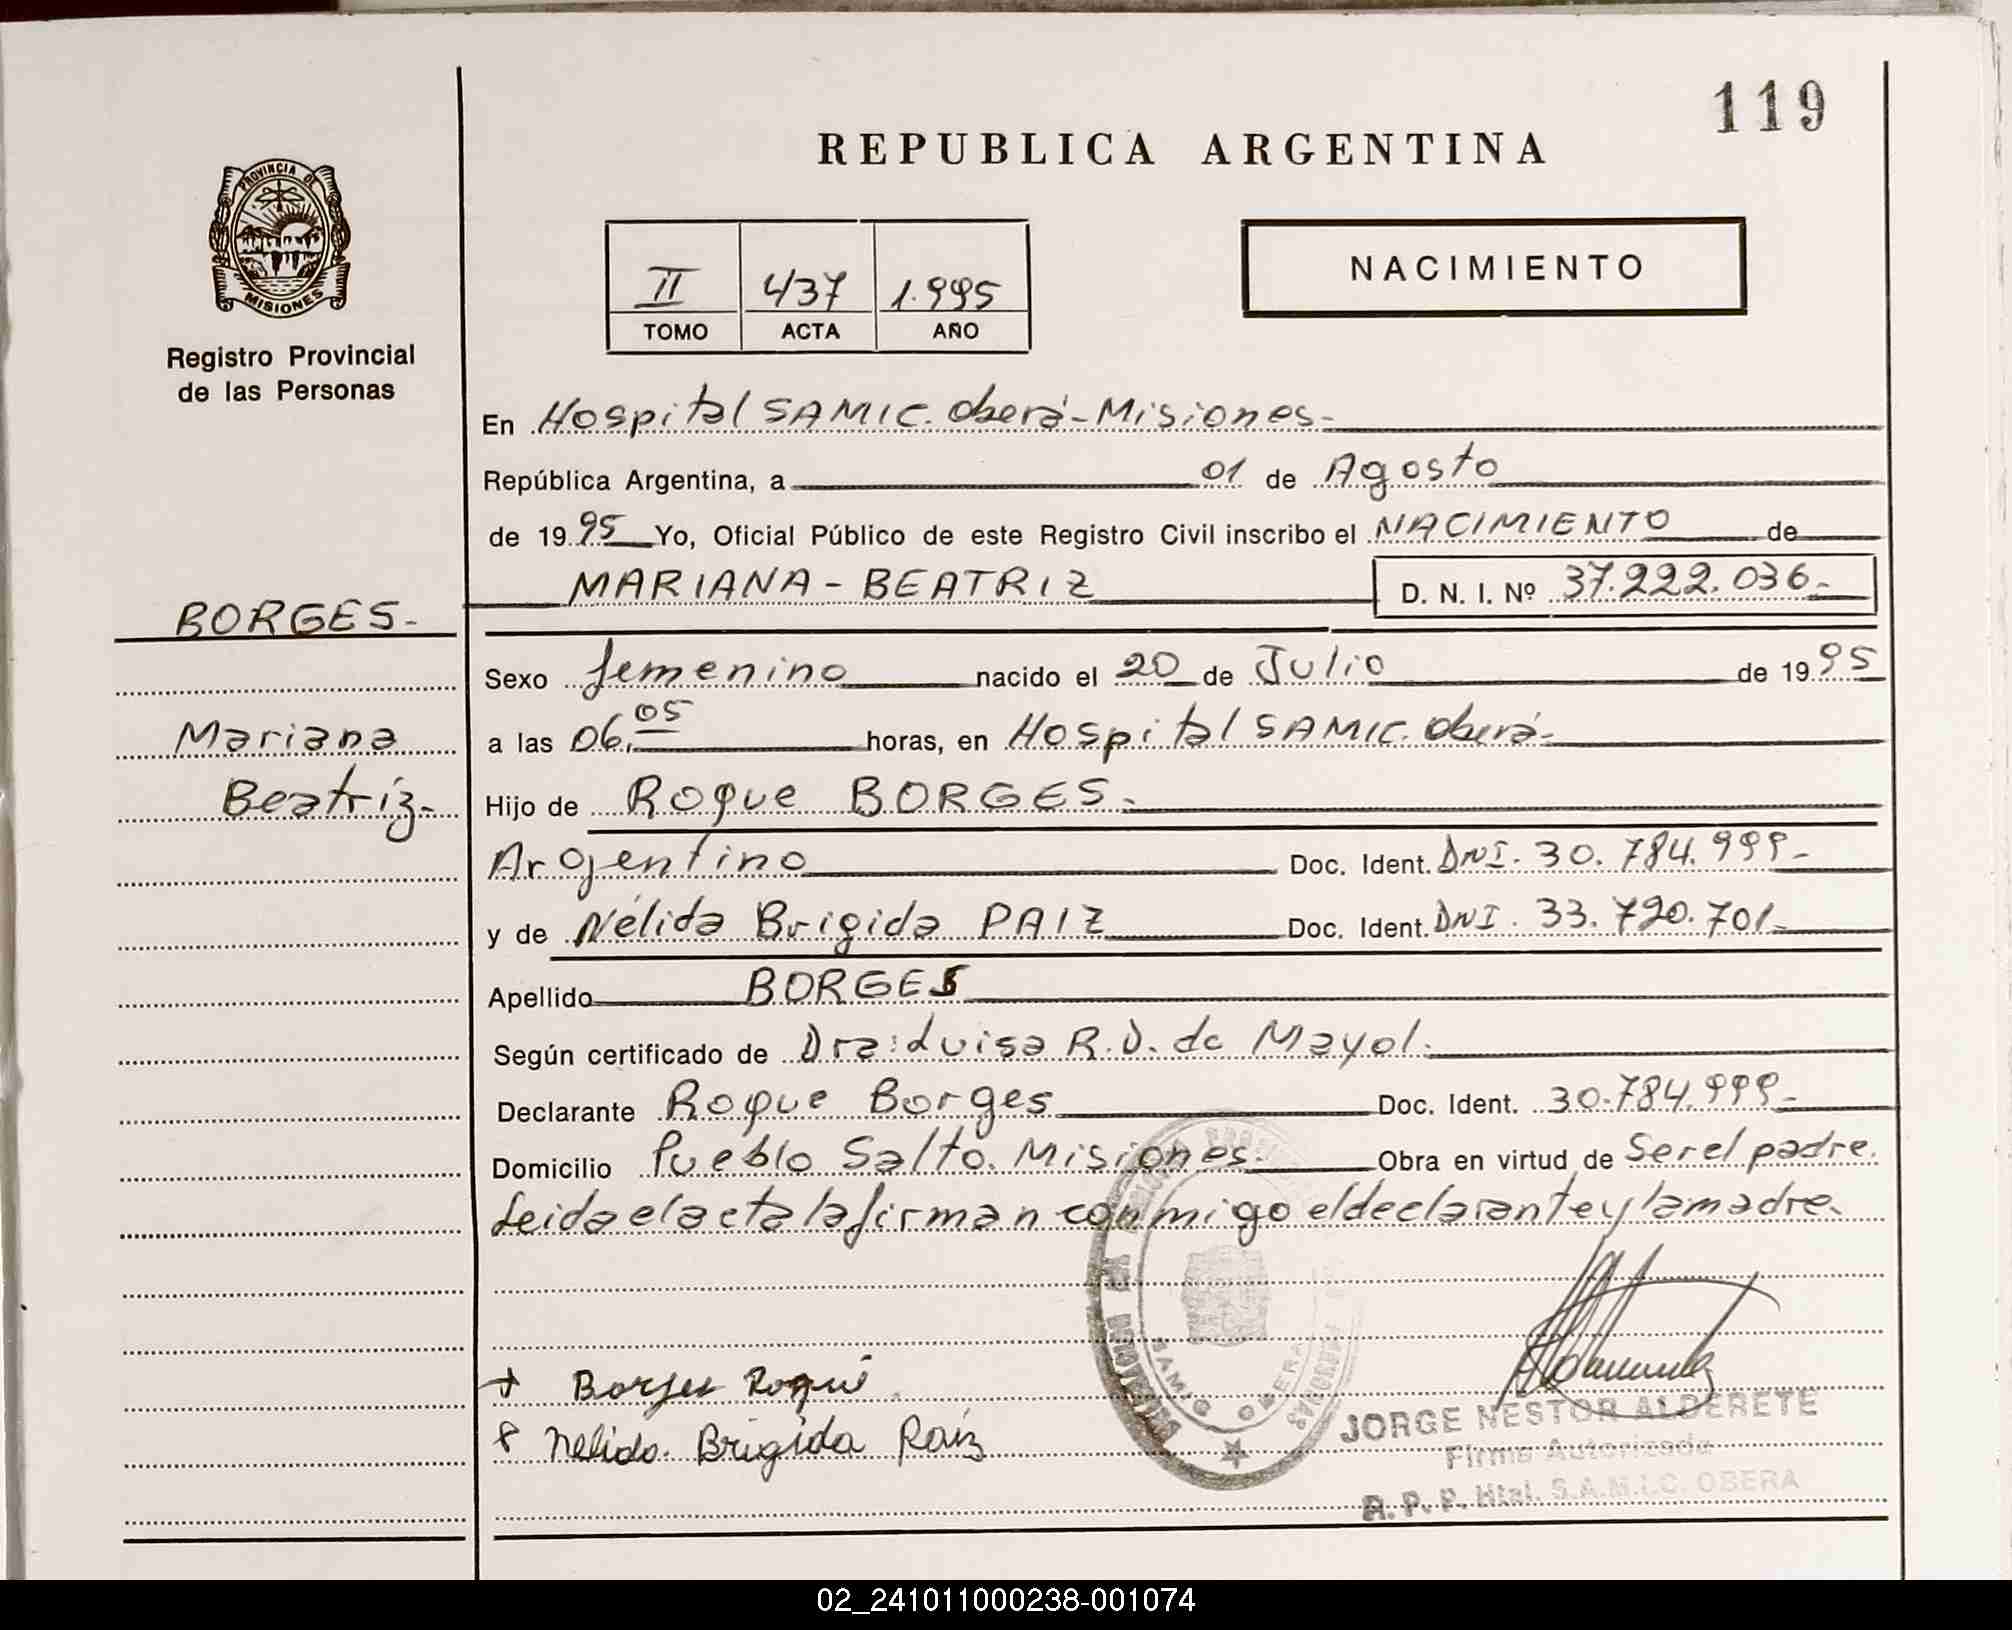 119
REPUBLICA ARGENTINA
PROVINCIA DE
MISIONES
Registro Provincial
de las Personas
II 437 1.995
TOMO ACTA AÑO
NACIMIENTO
En Hospital SAMIC. Oberá - Misiones.-
República Argentina, a 01 de Agosto
de 1995 Yo, Oficial Público de este Registro Civil inscribo el NACIMIENTO de
MARIANA - BEATRIZ D. N. I. Nº 37.222.036.-
BORGES.-
Sexo femenino nacido el 20 de Julio de 1995
Mariana
a las 06,05 horas, en Hospital SAMIC. Oberá.-
Beatriz.-
Hijo de Roque BORGES.-
Argentino Doc. Ident. DNI. 30.784.999.-
y de Nélida Brigida PAIZ Doc. Ident. DNI. 33.720.701.-
Apellido BORGES
Según certificado de Dra: Luisa R.D. de Mayol.
Declarante Roque Borges Doc. Ident. 30.784.999.-
Domicilio Pueblo Salto. Misiones. Obra en virtud de Ser el padre.
Leida el acta la firman conmigo el declarante y la madre.
Borges Roque
Nelida. Brigida Paiz
SAMIC OBERA
JORGE NESTOR ALDERETE
Firma Autorizada
R. P. P. Htal. S.A.M.I.C. OBERA
02_241011000238-001074